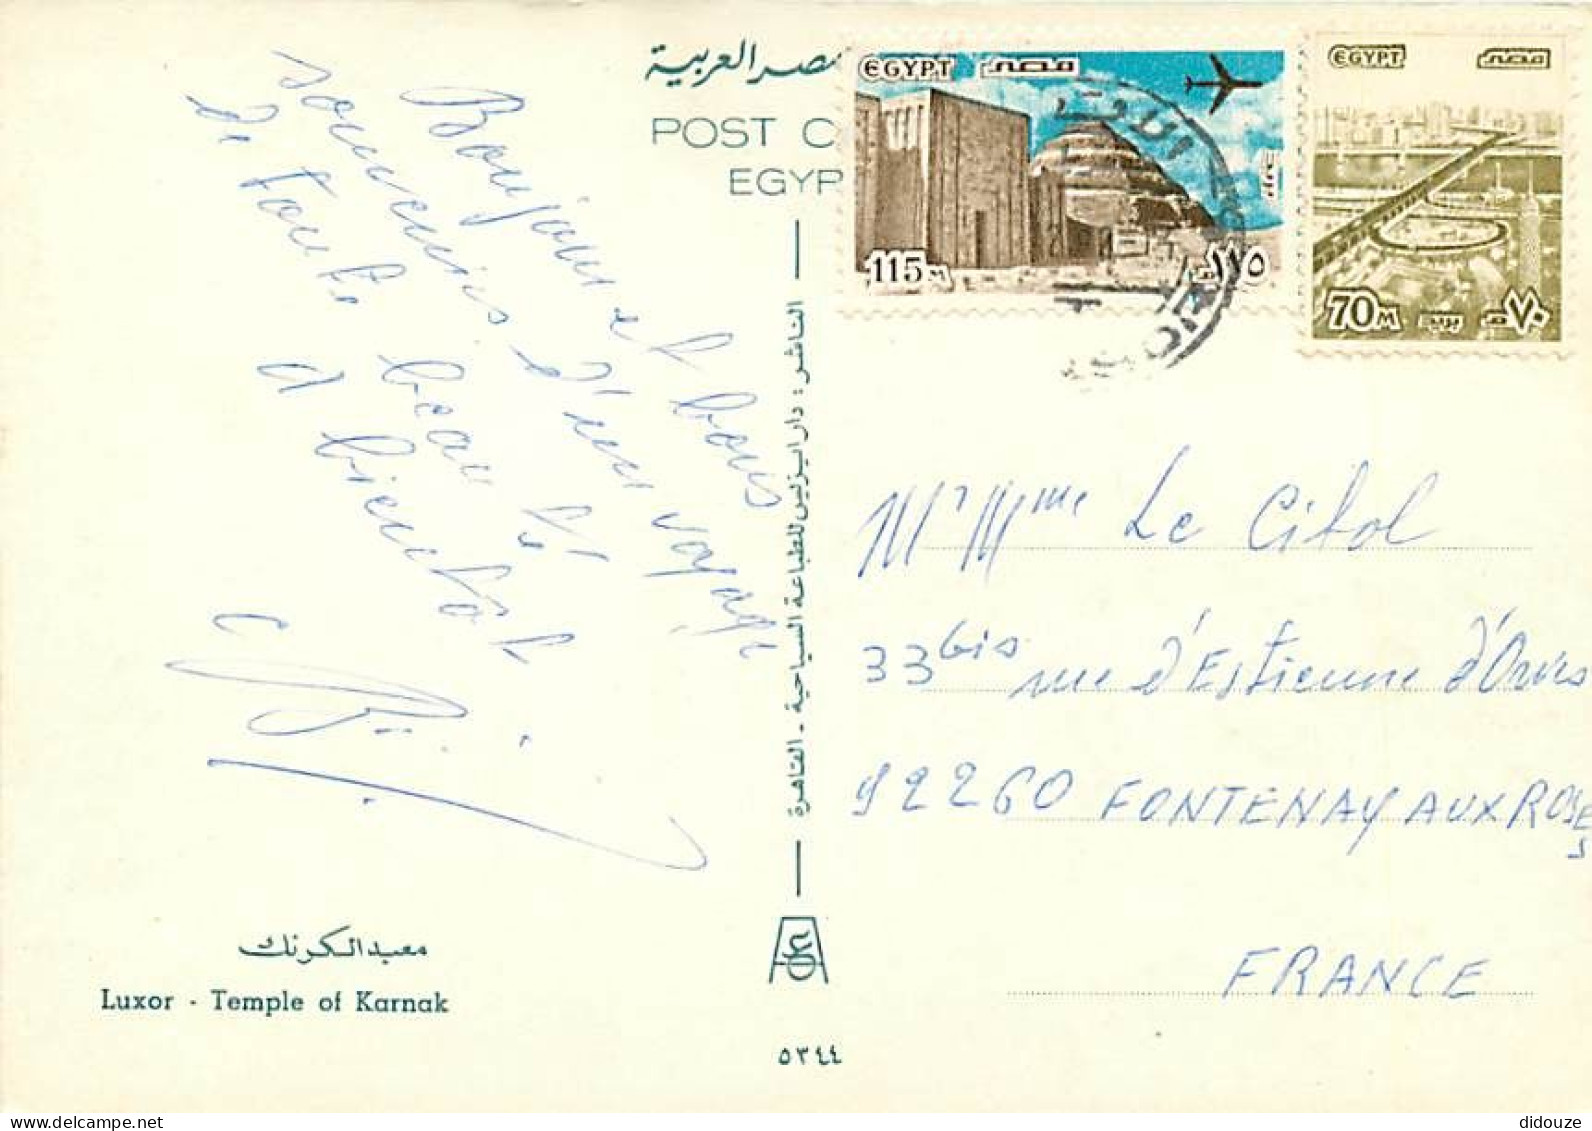 مصر العربية
POST C
EGYP
EGYPT مصر
115M ١١٥
EGYPT مصر
70M بريد ٧٠
Bonjour et bons
souvenirs d'un voyage
de toute beauté
à bientôt
الناشر : دار ايزيس للطباعة السياحية - القاهرة
Mr Mme Le Citol
33bis rue d'Estienne d'Orves
92260 FONTENAY AUX ROSES
FRANCE
معبد الكرنك
Luxor - Temple of Karnak
٥٣٤٤
didouze